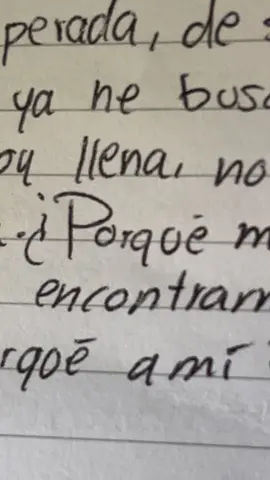 perada, de
ya ne bus
oy llena, no
¿Porqué m
encontram
rqoé amí